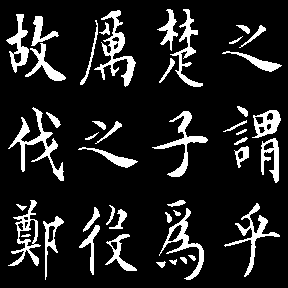 之謂乎
楚子爲
厲之役
故伐鄭